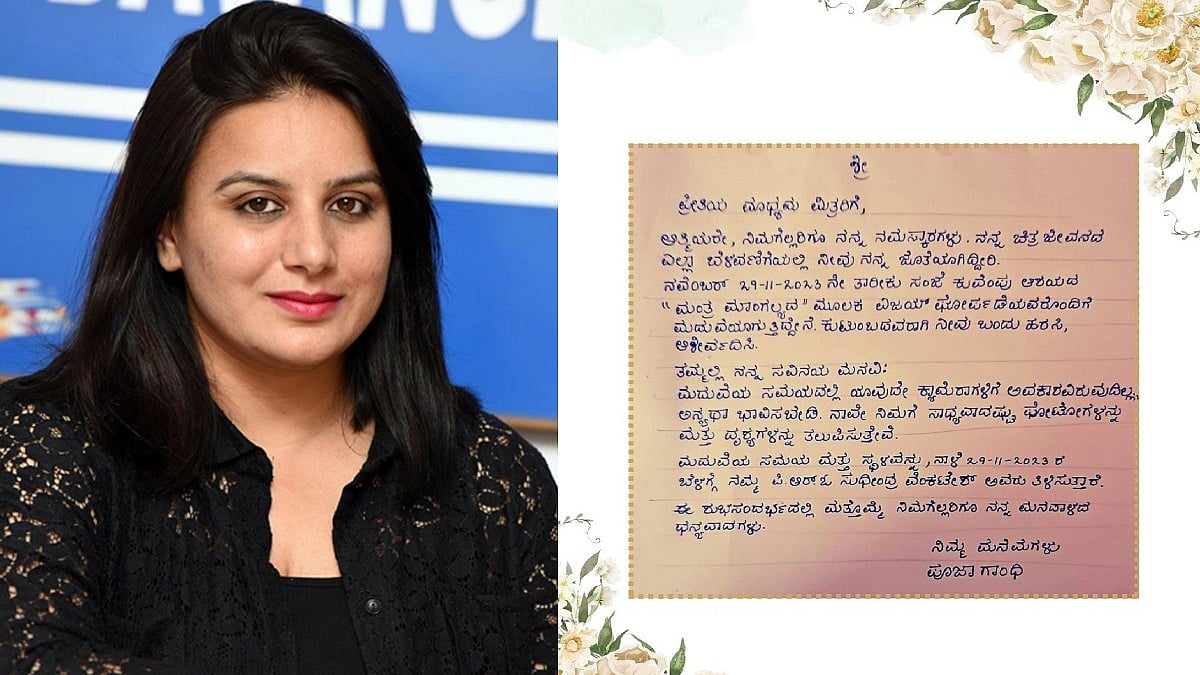 ಶ್ರೀ
ಪ್ರೀತಿಯ ಮಾಧ್ಯಮ ಮಿತ್ರರಿಗೆ,
ಆತ್ಮಿಯರೇ, ನಿಮಗೆಲ್ಲರಿಗೂ ನನ್ನ ನಮಸ್ಕಾರಗಳು. ನನ್ನ ಚಿತ್ರ ಜೀವನದ
ಎಲ್ಲಾ ಬೆಳವಣಿಗೆಯಲ್ಲಿ ನೀವು ನನ್ನ ಜೊತೆಯಾಗಿದ್ದೀರಿ.
ನವೆಂಬರ್ 29-11-2023 ನೇ ತಾರೀಕು ಸಂಜೆ ಕುವೆಂಪು ಆಶಯದ
"ಮಂತ್ರ ಮಾಂಗಲ್ಯದ" ಮೂಲಕ ವಿಜಯ್ ಘೋರ್ಪಡೆಯವರೊಂದಿಗೆ
ಮದುವೆಯಾಗುತ್ತಿದ್ದೇನೆ. ಕುಟುಂಬದವರಾಗಿ ನೀವು ಬಂದು ಹರಸಿ,
ಆಶೀರ್ವದಿಸಿ.
ತಮ್ಮಲ್ಲಿ ನನ್ನ ಸವಿನಯ ಮನವಿ:
ಮದುವೆಯ ಸಮಯದಲ್ಲಿ ಯಾವುದೇ ಕ್ಯಾಮೆರಾಗಳಿಗೆ ಅವಕಾಶವಿರುವುದಿಲ್ಲ,
ಅನ್ಯಥಾ ಭಾವಿಸಬೇಡಿ. ನಾವೇ ನಿಮಗೆ ಸಾಧ್ಯವಾದಷ್ಟು ಫೋಟೋಗಳನ್ನು
ಮತ್ತು ದೃಶ್ಯಗಳನ್ನು ತಲುಪಿಸುತ್ತೇವೆ.
ಮದುವೆಯ ಸಮಯ ಮತ್ತು ಸ್ಥಳವನ್ನು, ನಾಳೆ 29-11-2023 ರ
ಬೆಳಗ್ಗೆ ನಮ್ಮ ಪಿ.ಆರ್.ಓ ಸುಧೀಂದ್ರ ವೆಂಕಟೇಶ್ ಅವರು ತಿಳಿಸುತ್ತಾರೆ.
ಈ ಶುಭಸಂದರ್ಭದಲ್ಲಿ ಮತ್ತೊಮ್ಮೆ ನಿಮಗೆಲ್ಲರಿಗೂ ನನ್ನ ಮನದಾಳದ
ಧನ್ಯವಾದಗಳು.
ನಿಮ್ಮ ಮನೆಮಗಳು
ಪೂಜಾ ಗಾಂಧಿ